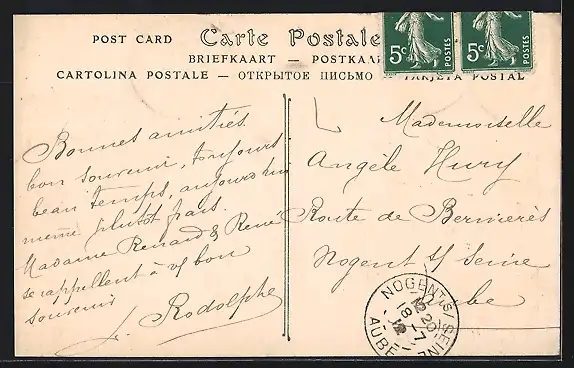 POST CARD Carte Postale
BRIEFKAART — POSTKAA
CARTOLINA POSTALE — ОТКРЫТОЕ ПИСЬМО — TARJETA POSTAL
5c POSTES
5c POSTES
Bonnes amitiés
bon souvenir, toujours
beau temps, aujourd'hui
même plutôt pais.
Madame Renard & René
se rappellent à vs bon
souvenir
Rodolphe
Mademoiselle
Angèle Hury
Route de Bernières
Nogent s/ Seine
Aube
NOGENT S/ SEINE
20
18-7
AUBE